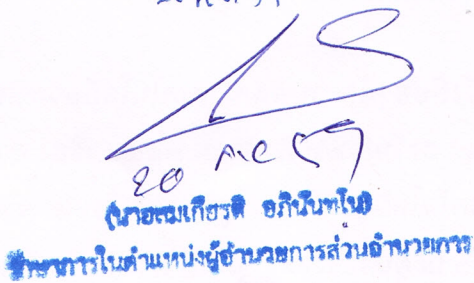 20 ตค 59
(นายสมเกียรติ อภินันทโน)
รักษาการในตำแหน่งผู้อำนวยการส่วนอำนวยการ